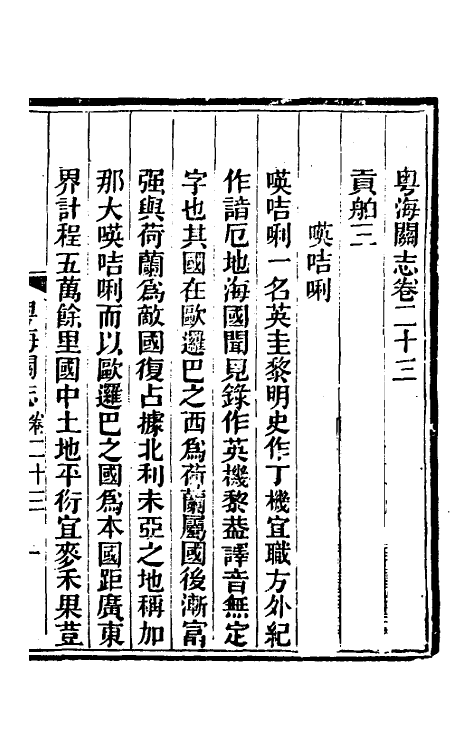 粵海關志卷二十三
貢舶三
㗲咭唎
㗲咭唎一名英圭黎明史作丁機宜職方外紀
作諳厄地海國聞見錄作英機黎葢譯音無定
字也其國在歐邏巴之西爲荷蘭屬國後漸富
强與荷蘭爲敵國復占據北利未亞之地稱加
那大㗲咭唎而以歐邏巴之國爲本國距廣東
界計程五萬餘里國中土地平衍宜麥禾果荳
粵海關志卷二十三 一